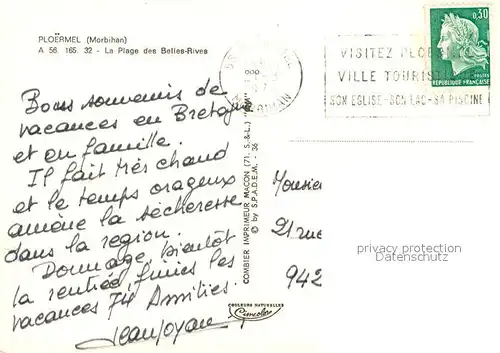 PLOËRMEL (Morbihan)
A 56. 165. 32 - La Plage des Belles-Rives
0,30
POSTES
REPUBLIQUE FRANÇAISE
VISITEZ
VILLE
SON EGLISE-SON LAC-SA PISCINE
MORBIHAN
Bons souvenirs de
vacances en Bretagne
et en famille.
Il fait très chaud
et le temps orageux
amène la sècheresse
dans la region.
Dommage, bientôt
la rentrée, finies les
vacances 74 Amitiés.
COMBIER IMPRIMEUR MACON (71. S.-&-L.) "CIM"
© by S.P.A.D.E.M. - 36
Monsieur
21 rue
942
privacy protection
Datenschutz
COULEURS NATURELLES
Cimcolor